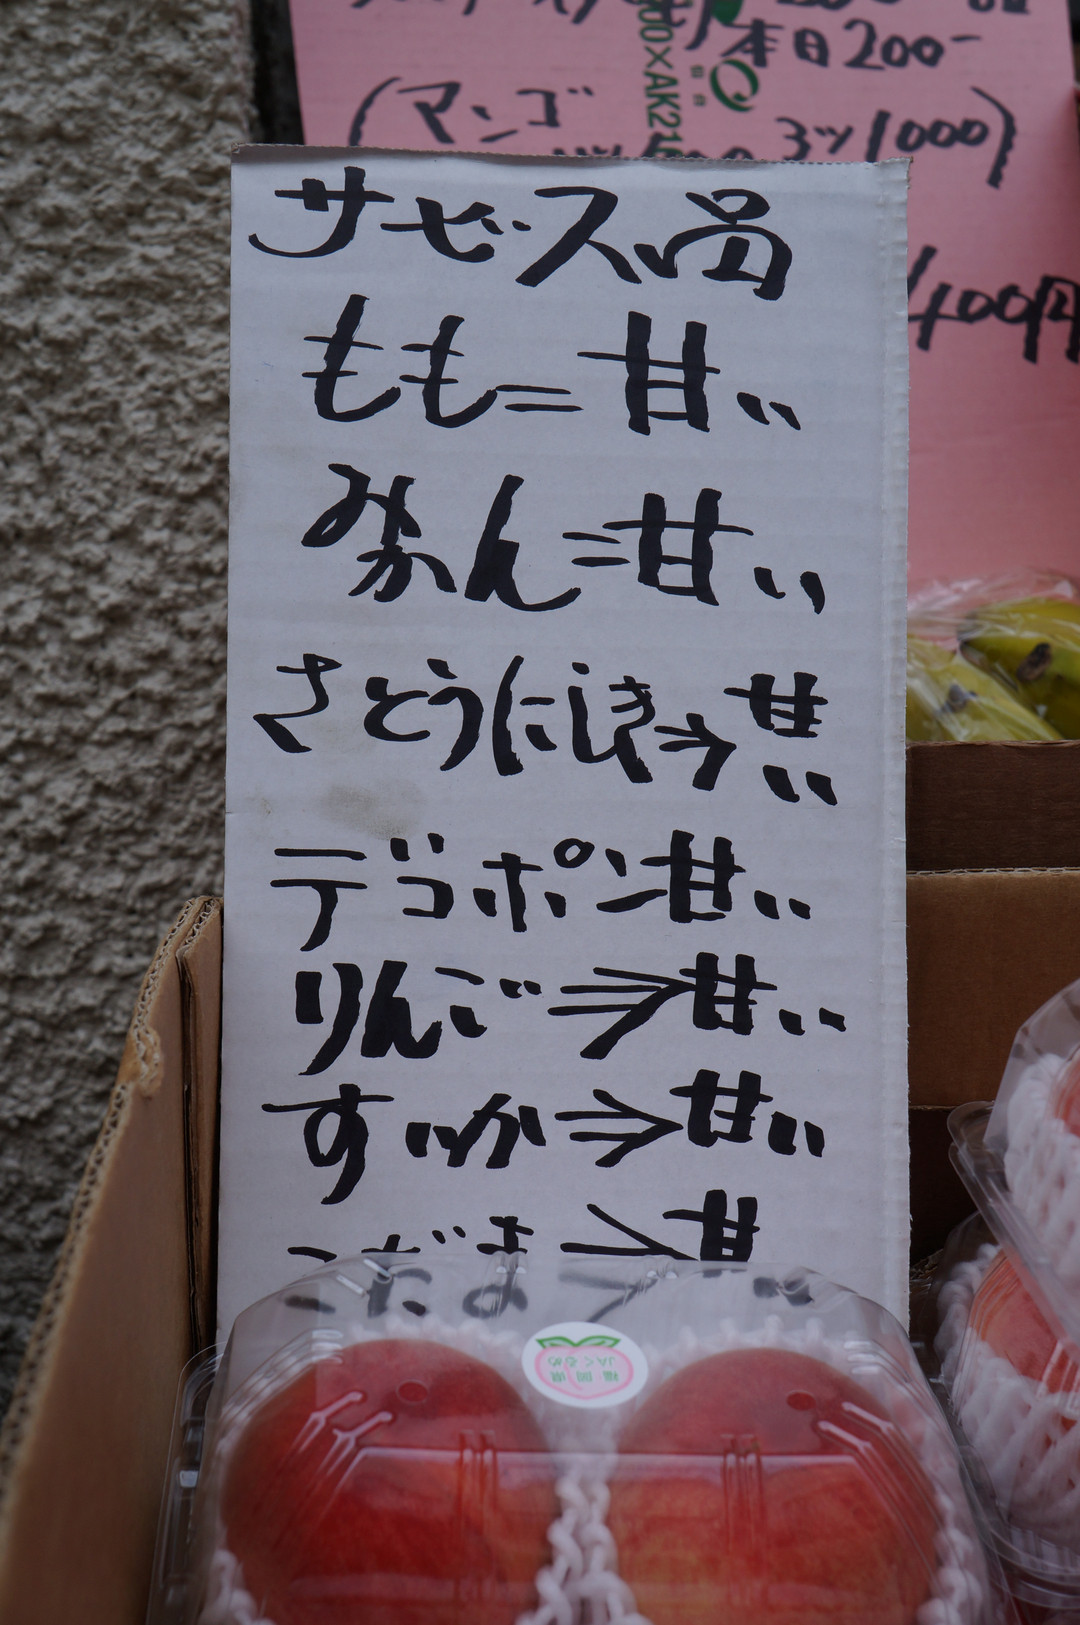 本日200-
(マンゴ 3ツ1000)
400円
00×AK2
サービス品
もも=甘い
みかん=甘い
さとうにしき→甘い
デコポン=甘い
りんご⇒甘い
すいか⇒甘い
こだま→甘い
福岡県
JAくるめ